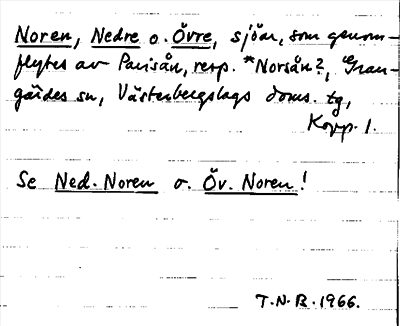 Noren, Nedre o. Övre, sjöar, som genom-
flytes av Parisån, resp. *Norsån?, Gran-
gärdes sn, Västerbergslags doms. tg,
Kopp. l.
Se Ned. Noren o. Öv. Noren!
T.N.B. 1966.